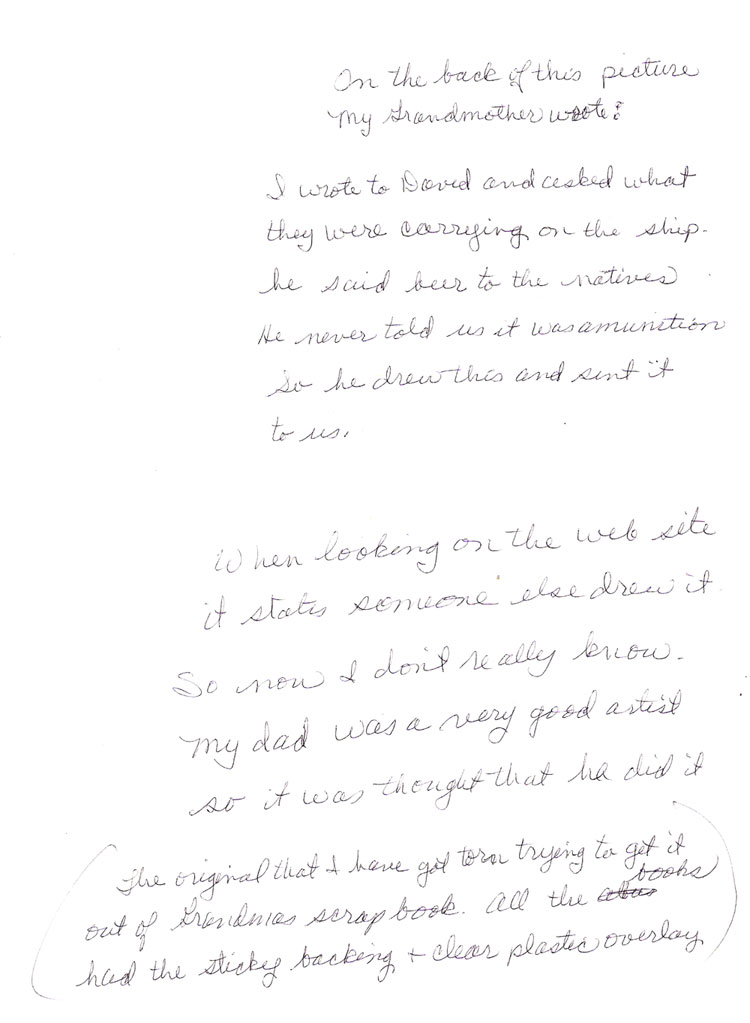 On the back of this picture
my Grandmother wrote:
I wrote to David and asked what
they were carrying on the ship.
he said beer to the natives
He never told us it was amunition
So he drew this and sent it
to us.
When looking on the web site
it states someone else drew it
So now I don't really know.
My dad was a very good artist
so it was thought that he did it
(The original that I have got torn trying to get it
out of Grandmas scrap book. All the books
had the sticky backing + clear plastic overlay)